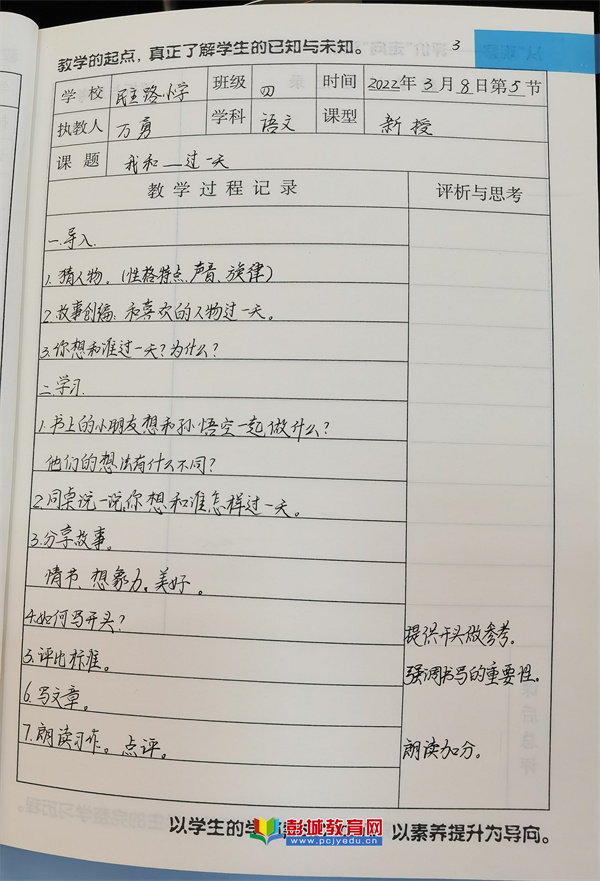 教学的起点，真正了解学生的已知与未知。 3
学校 民主路小学 班级 四 时间 2022年3月8日第5节
执教人 万勇 学科 语文 课型 新授
课题 我和__过一天
教学过程记录 评析与思考
一.导入.
1.猜人物。(性格特点、声音、旋律)
2.故事创编：和喜欢的人物过一天。
3.你想和谁过一天?为什么?
二.学习.
1.书上的小朋友想和孙悟空一起做什么?
他们的想法有什么不同?
2.同桌说一说,你想和谁怎样过一天。
3.分享故事。
情节、想象力、美好。
4.如何写开头? 提供开头做参考。
5.评比标准。 强调书写的重要性。
6.写文章。
7.朗读习作。点评。 朗读加分。
以学生的学 以素养提升为导向。
彭城教育网
www.pcjyedu.cn